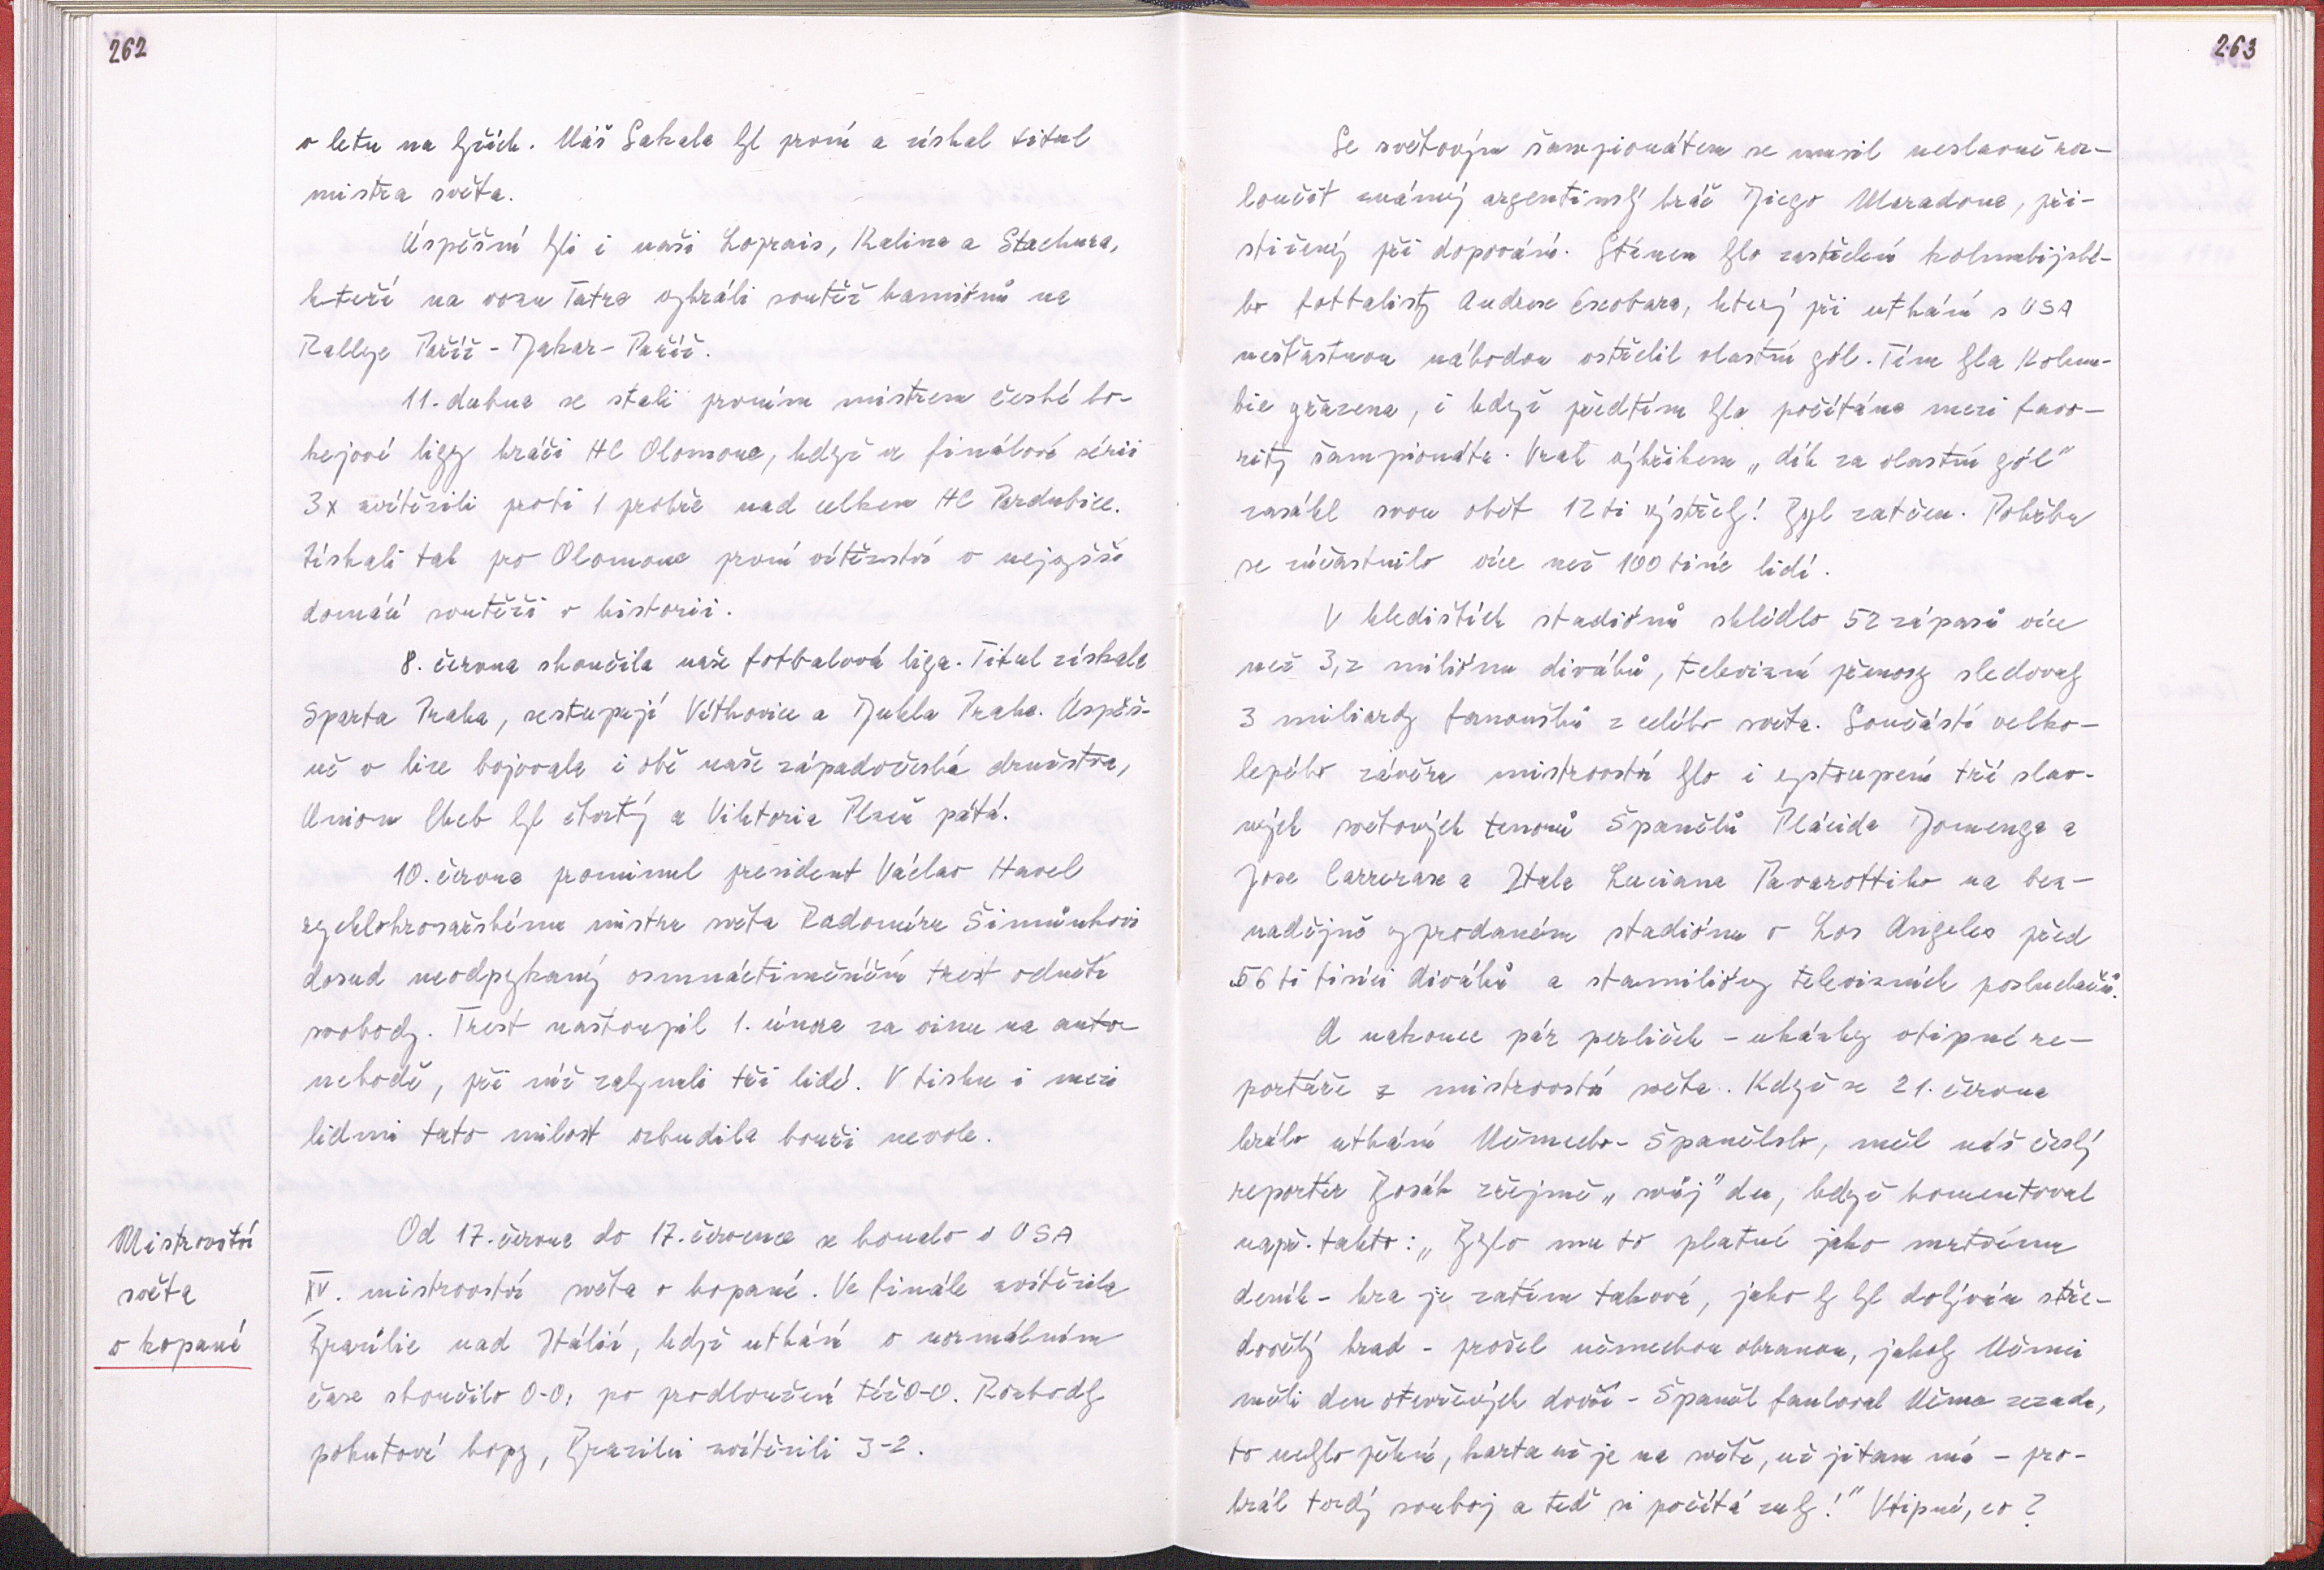 262
v letu na lyžích. Náš Sakala byl první a získal titul
mistra světa.
Úspěšní byli i naši Loprais, Kalina a Stachura,
kteří na voze Tatra vyhráli soutěž kamiónů na
Rallye Paříž - Dakar - Paříž.
11. dubna se stali prvním mistrem české ho-
kejové ligy hráči HC Olomouc, když ve finálové sérii
3x zvítězili proti 1 prohře nad celkem HC Pardubice.
Získali tak pro Olomouc první vítězství v nejvyšší
domácí soutěži v historii.
8. června skončila naše fotbalová liga. Titul získala
Sparta Praha, sestupují Vítkovice a Dukla Praha. Úspěš-
ně v lize bojovala i obě naše západočeská družstva,
Union Cheb byl čtvrtý a Viktoria Plzeň pátá.
10. června prominul president Václav Havel
rychlobruslařskému mistru světa Radomíru Šimůnkovi
dosud neodpykaný osmnáctiměsíční trest odnětí
svobody. Trest nastoupil 1. února za vinu na auto-
nehodě, při níž zahynuli tři lidé. V tisku i mezi
lidmi tato milost vzbudila bouři nevole.
Mistrovství
světa
v kopané
Od 17. června do 17. července se konalo v USA
XV. mistrovství světa v kopané. Ve finále zvítězila
Brazílie nad Itálií, když utkání v normálním
čase skončilo 0-0, po prodloužení též 0-0. Rozhodly
pokutové kopy, Brazilci zvítězili 3-2.
263
Se světovým šampionátem se musil neslavně roz-
loučit známý argentinský hráč Diego Maradona, při-
stižený při dopování. Stínem bylo zastřelení kolumbijské-
ho fotbalisty Andrese Escobara, který při utkání s USA
nešťastnou náhodou vstřelil vlastní gól. Tím byla Kolum-
bie vyřazena, i když předtím byla počítána mezi favo-
rity šampionátu. Vrah výkřikem „dík za vlastní gól"
zasáhl svou oběť 12ti výstřely! Byl zatčen. Pohřbu
se zúčastnilo více než 100 tisíc lidí.
V hledištích stadiónů shlédlo 52 zápasů více
než 3,2 miliónu diváků, televizní přenosy sledovaly
3 miliardy fanoušků z celého světa. Součástí velko-
lepého závěru mistrovství bylo i vystoupení tří slav-
ných světových tenorů Španělů Plácida Dominga a
Jose Carrerase a Itala Luciana Pavarottiho na bez-
nadějně vyprodaném stadiónu v Los Angeles před
56 ti tisíci diváků a stamilióny televizních posluchačů.
A nakonec pár perliček - ukázky vtipné re-
portáže z mistrovství světa. Když se 21. června
hrálo utkání Německo - Španělsko, měl náš český
reportér Bosák zřejmě „svůj" den, když komentoval
např. takto: „Bylo mu to platné jako mrtvému
deník - hra je zatím taková, jako by byl dobýván stře-
dověký hrad - prošel německou obranou, jakoby Němci
měli den otevřených dveří - Španěl fauloval Němce zezadu,
to nebylo pěkné, karta už je na světě, už ji tam má - pro-
hrál tvrdý souboj a teď si počítá zuby!" Vtipné, co?